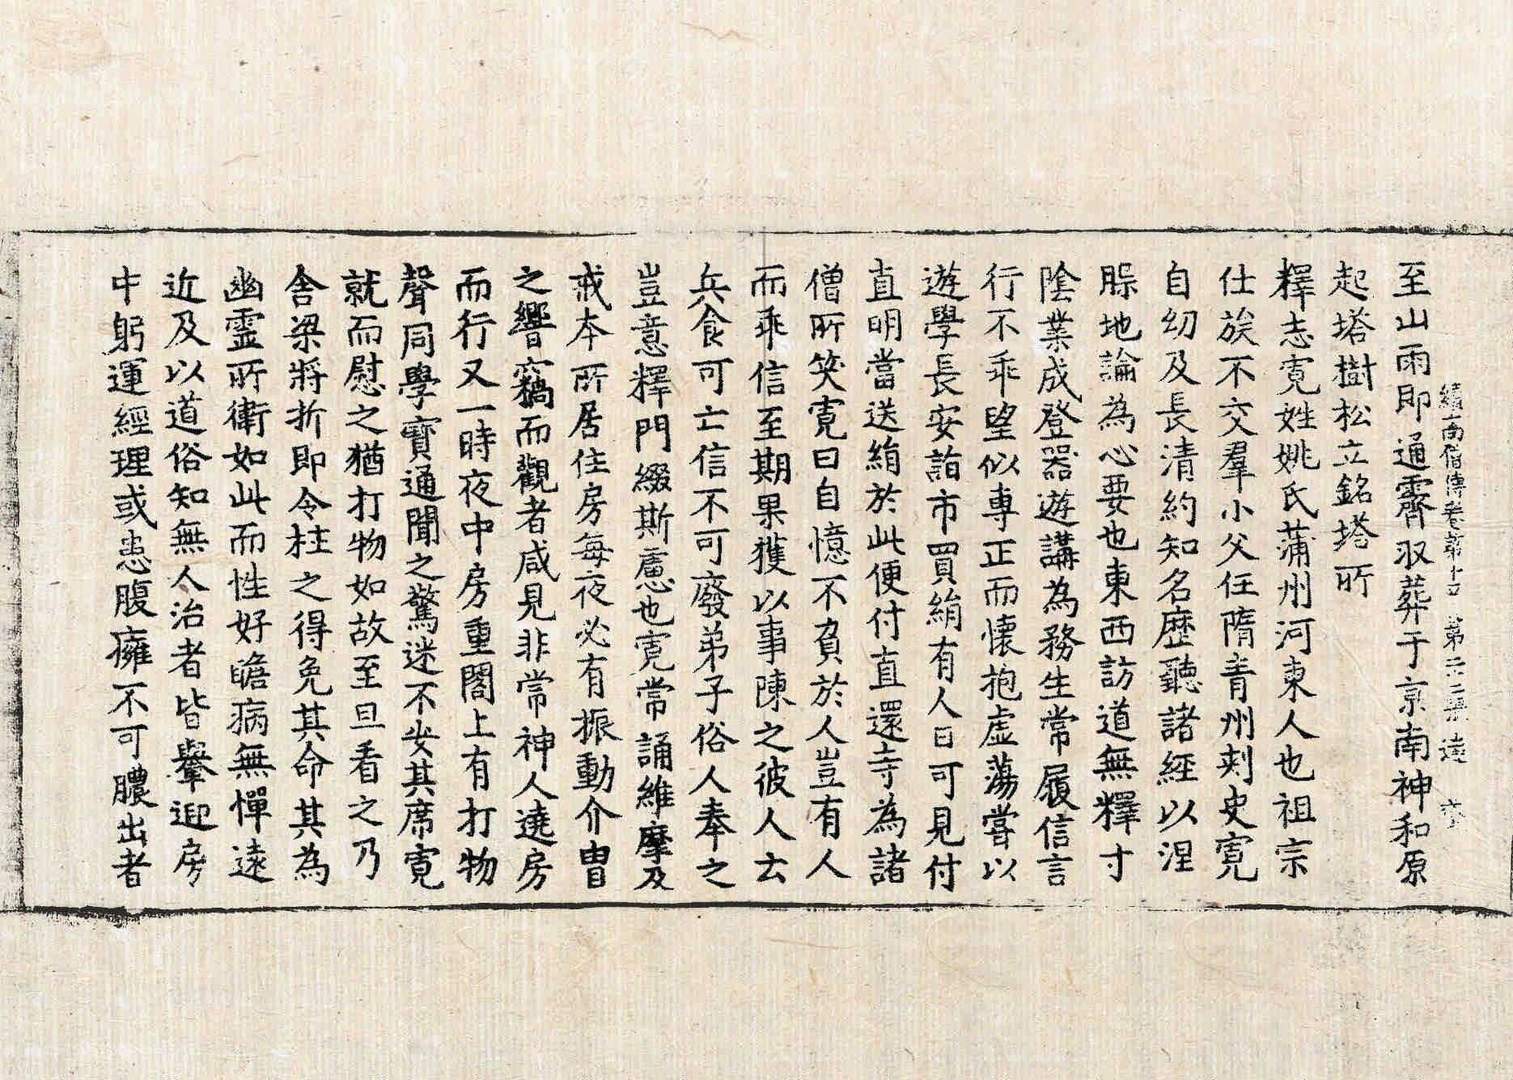 續高僧傳卷第十五 第二十二張 遠
至山雨即通霽收葬于京南神和原
起塔樹松立銘塔所
釋志寬姓姚氏蒲州河東人也祖宗
仕族不交羣小父任隋青州刾史寬
自幼及長清約知名歷聽諸經以涅
腺地論為心要也東西訪道無釋寸
陰業成登器遊講為務生常履信言
行不乖望似專正而懷抱虛蕩嘗以
遊學長安詣市買絹有人曰可見付
直明當送絹於此便付直還寺為諸
僧所笑寬曰自憶不負於人豈有人
而乖信至期果獲以事陳之彼人云
兵食可亡信不可廢弟子俗人奉之
豈意釋門綴斯慮也寬常誦維摩及
戒本所居住房每夜必有振動介胄
之響竊而觀者咸見非常神人遶房
而行又一時夜中房重閣上有打物
聲同學寶通聞之驚迷不安其席寬
就而慰之猶打物如故至旦看之乃
舍梁將折即令柱之得免其命其為
幽霊所衛如此而性好瞻病無憚遠
近及以道俗知無人治者皆轝迎房
中躬運經理或患腹癰不可膿出者